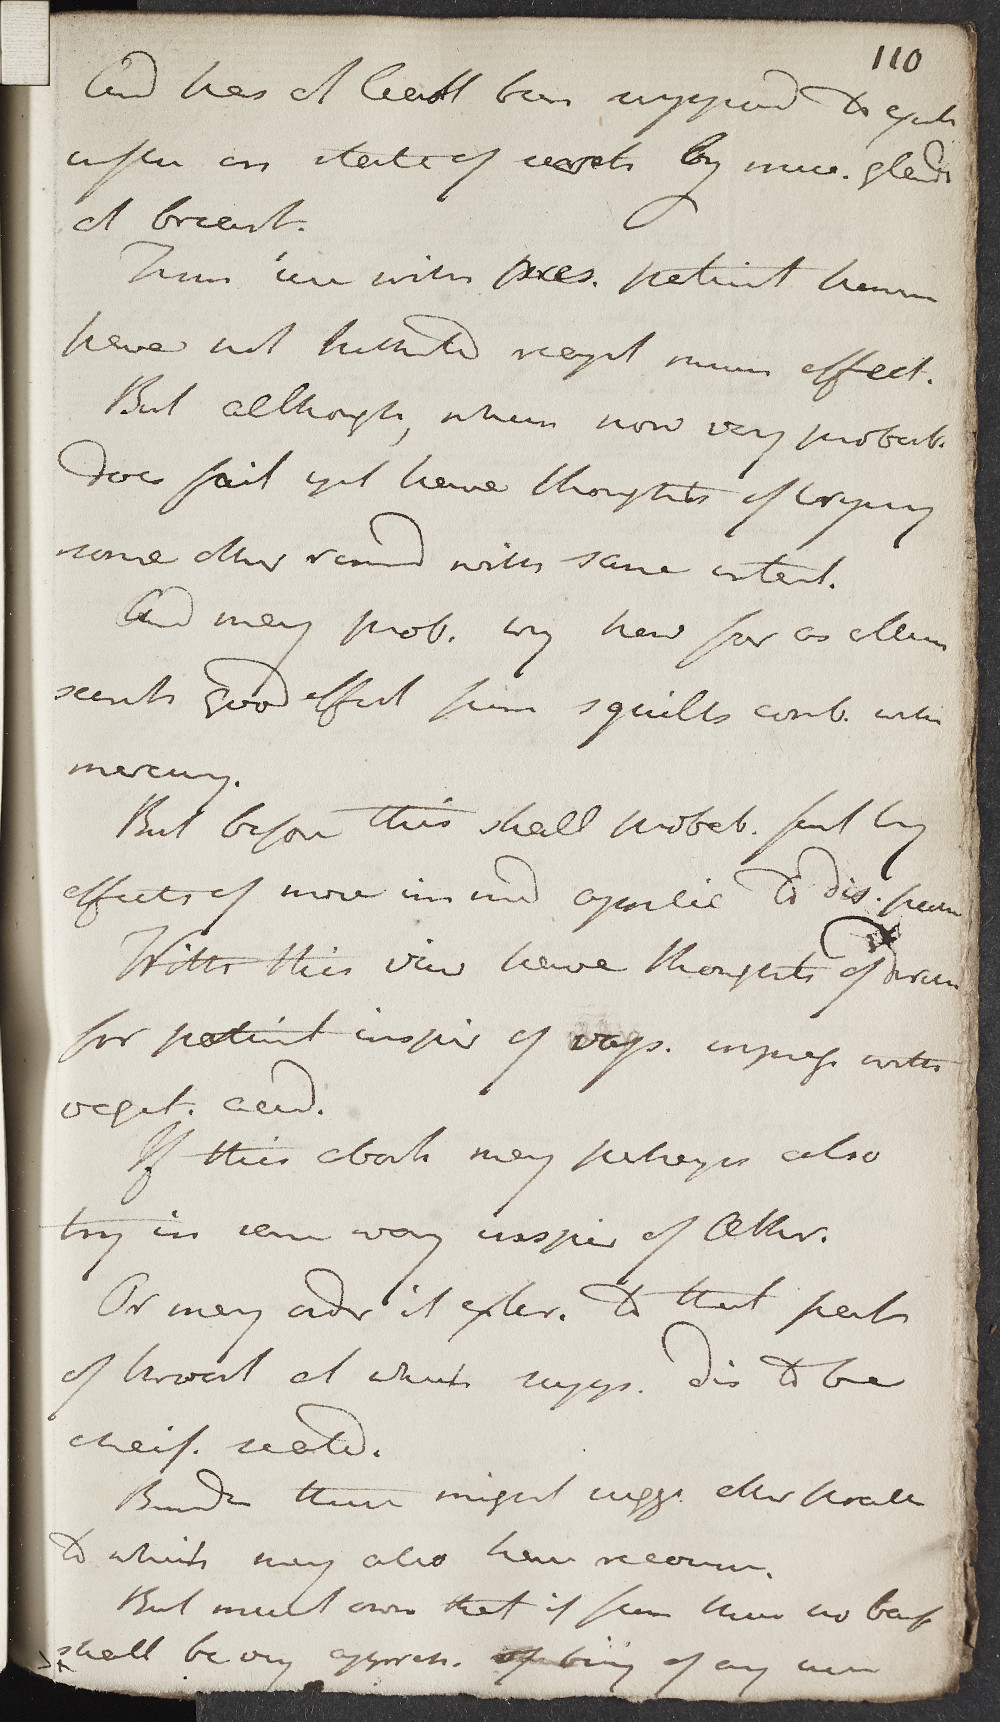 110
And has at least been supposed to
influ on state of secrets by muc. glands
at breast.
Thus use with pres. patient however
have not hitherto recept much effect.
But although, when now very probab.
does fail yet have thoughts of trying
some other remed with same intent.
And may prob. try how far as
good effect from squills comb. with
mercury.
But before this shall probab. first try
effects of more immed applic to dis. part
With this view have thoughts of
for patient inspir of vaps. impreg with
veget. acid.
If this abort may perhaps also
try in same way inspir of Æther.
Or may order it exter. to that part
of breast at which supps. dis to be
cheif. seated.
Besides these might sugg. other pract
to which may also have recours.
But must own that if from these no benf
shall be very appreh. of any use